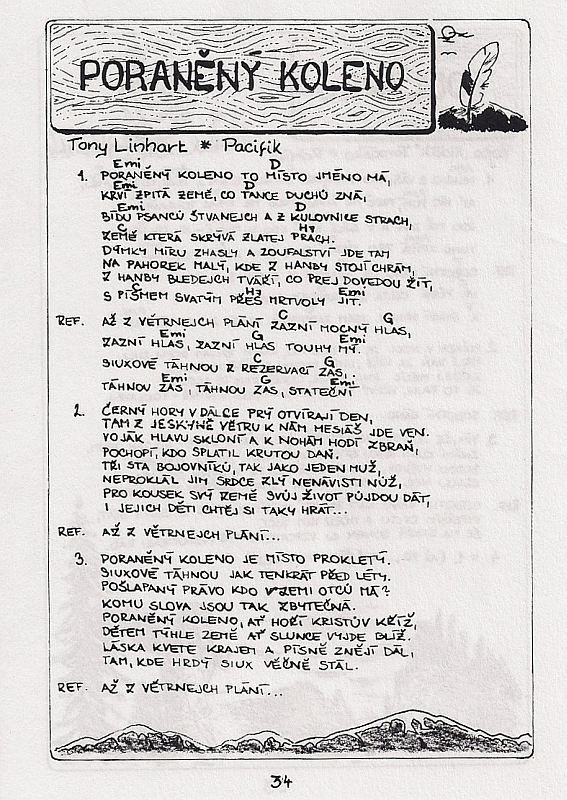 PORANĚNÝ KOLENO
Tony Linhart * Pacifik
Emi D
1. PORANĚNÝ KOLENO TO MÍSTO JMÉNO MÁ,
Emi D
KRVÍ ZPITÁ ZEMĚ, CO TANCE DUCHŮ ZNÁ,
Emi D
BÍDU PSANCŮ ŠTVANEJCH A Z KULOVNICE STRACH,
C H7
ZEMĚ KTERÁ SKRÝVÁ ZLATEJ PRACH.
DÝMKY MÍRU ZHASLY A ZOUFALSTVÍ JDE TAM
NA PAHOREK MALÝ, KDE Z HANBY STOJÍ CHRÁM,
Z HANBY BLEDEJCH TVÁŘÍ, CO PREJ DOVEDOU ŽÍT,
C H7 Emi
S PÍSMEM SVATÝM PŘES MRTVOLY JÍT.
C G
REF. AŽ Z VĚTRNEJCH PLÁNÍ ZAZNÍ MOCNÝ HLAS,
Emi G Emi
ZAZNÍ HLAS, ZAZNÍ HLAS TOUHY MÝ.
C G
SIUXOVÉ TÁHNOU Z REZERVACÍ ZAS,
Emi G Emi
TÁHNOU ZAS, TÁHNOU ZAS, STATEČNÍ
2. ČERNÝ HORY V DÁLCE PRÝ OTVÍRAJÍ DEN,
TAM Z JESKYNĚ VĚTRU K NÁM MESIÁŠ JDE VEN.
VOJÁK HLAVU SKLONÍ A K NOHÁM HODÍ ZBRAŇ,
POCHOPÍ, KDO SPLATIL KRUTOU DAŇ.
TŘI STA BOJOVNÍKŮ, TAK JAKO JEDEN MUŽ,
NEPROKLÁL JIM SRDCE ZLÝ NENÁVISTI NŮŽ,
PRO KOUSEK SVÝ ZEMĚ SVŮJ ŽIVOT PŮJDOU DÁT,
I JEJICH DĚTI CHTĚJ SI TAKY HRÁT...
REF. AŽ Z VĚTRNEJCH PLÁNÍ...
3. PORANĚNÝ KOLENO JE MÍSTO PROKLETÝ.
SIUXOVÉ TÁHNOU JAK TENKRÁT PŘED LÉTY.
POŠLAPANÝ PRÁVO KDO V ZEMI OTCŮ MÁ?
KOMU SLOVA JSOU TAK ZBYTEČNÁ.
PORANĚNÝ KOLENO, AŤ HOŘÍ KRISTŮV KŘÍŽ,
DĚTEM TÝHLE ZEMĚ AŤ SLUNCE VYJDE BLÍŽ.
LÁSKA KVETE KRAJEM A PÍSNĚ ZNĚJÍ DÁL,
TAM, KDE HRDÝ SIUX VĚČNĚ STÁL.
REF. AŽ Z VĚTRNEJCH PLÁNÍ...
34